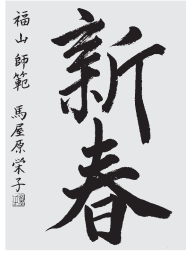 新春
福山 師範 馬屋原栄子